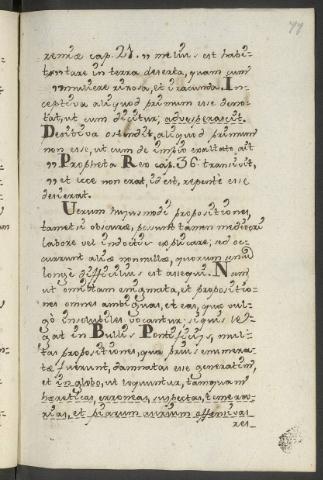 77
remiæ cap. 21. „ melius est habi-
„ tare in terra deserta, quam cum
„ muliere rixosa, et iracunda. In-
ceptiva aliquod primum esse deno-
tat, ut cum dicitur, advesperascit.
Desitiva ostendit, aliquod primum
non esse, ut cum de impio exaltato, ait
„ Propheta Reo cap. 36. transivit,
„ et ecce non erat, id est, repente esse
desierat.
Verum hujusmodi propositiones,
tametsi obscuræ, possunt tamen mediocri
labore vel indoctis explicare, sed oc-
currunt aliæ nonnullæ, quorum sensu
longe difficilius est assequi. Nam
ut omittam enigmata, et propositio-
nes omnes ambiguas, et eas, quæ vul-
go insolubiles vocantur: siquis le-
gat in Bullis Pontificiis, mul-
tas propositiones, quæ prius enumera-
tæ fuerunt, damnatas esse generatim,
et in globo, ut loquuntur, tamquam
hæreticas, erroneas, suspectas, temera-
rias, et piarum aurium offensivas
res-